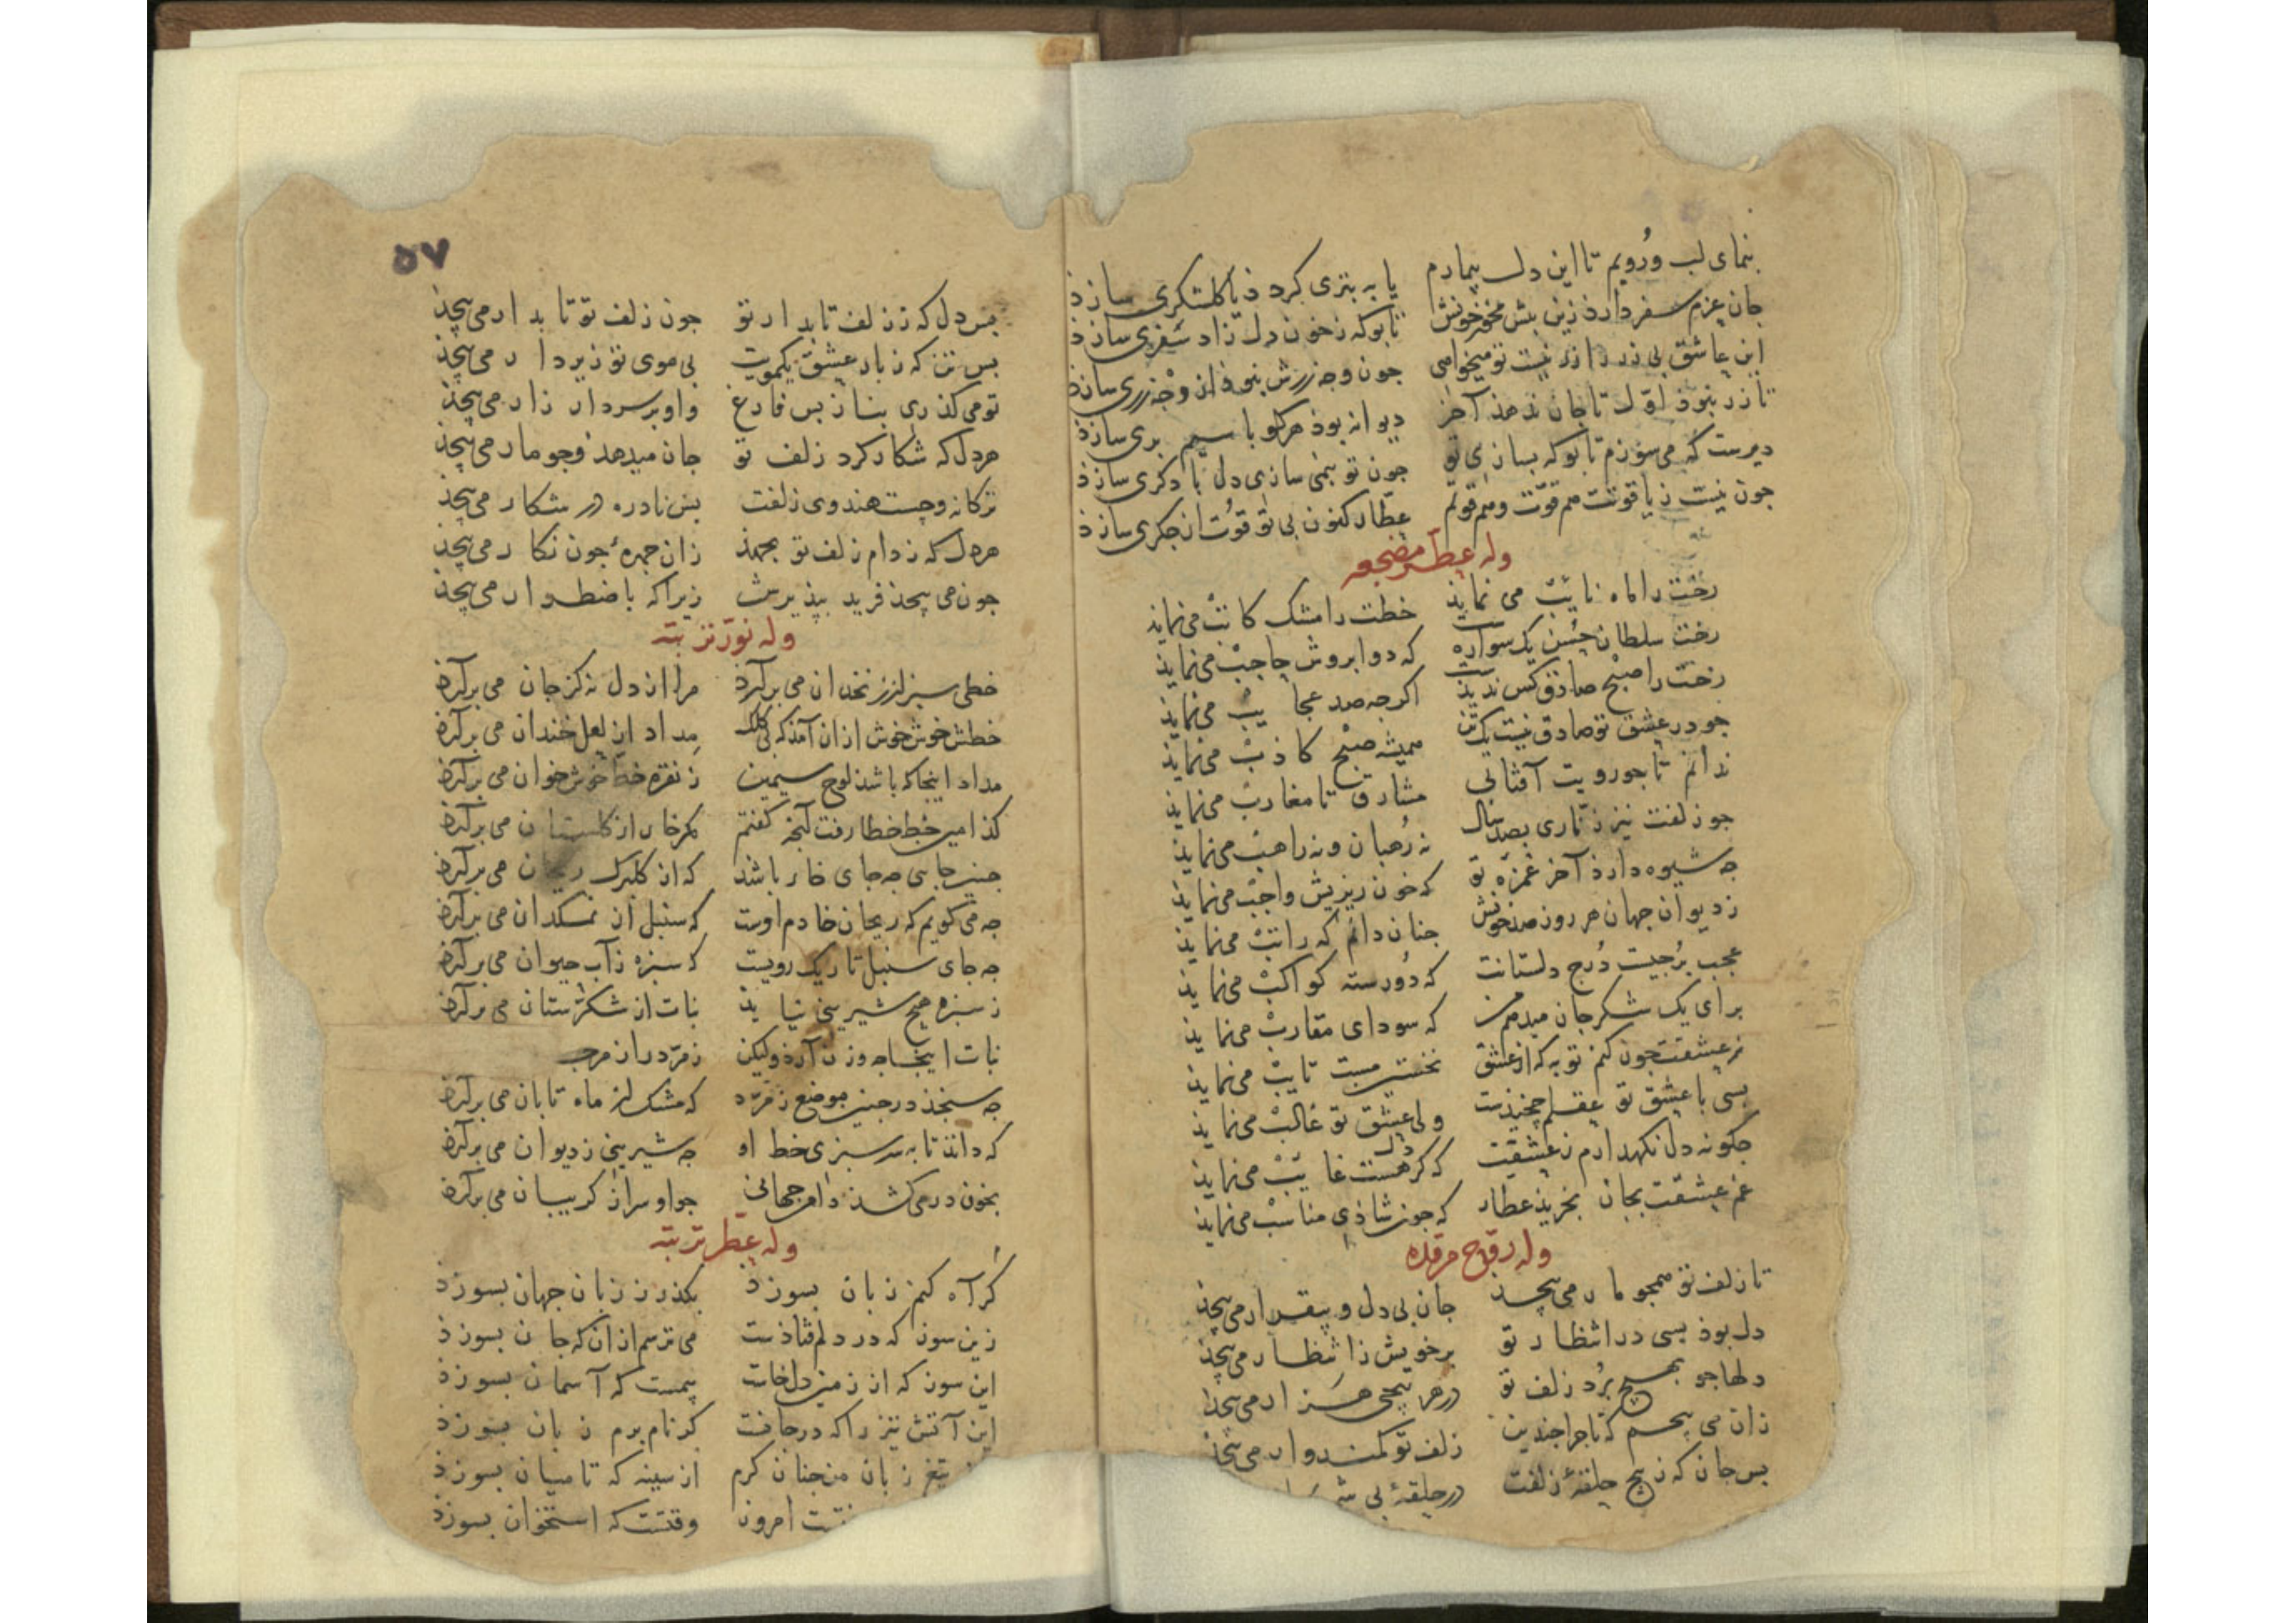 بنمای لب و رویم تا این دل بیمارم یا به بتری کرد ذ یا کلشکری سازذ
جان عزم سفر دارذ زین بیش مخور خونش تا بوکه ز خون دل زاد سفری سازذ
این عاشق بی زر را زر نیست تو میخواهی جون وجه زرش نبوذ از وجه زری سازذ
تا زر نبوذ اول تا جان ندهذ آخر دیوانه بوذ هرکو با سیم بری سازذ
دیرست که می سوزم تا بوکه بسازی تو جون تو بنمی سازی دل با دکری سازذ
جون نیست ز یاقوتت هم قوت و هم قوتم عطار کنون بی تو قوت از جکری سازذ
وله عطر مضجعه
رخت را ماه نایب می نمایذ خطت را مشک کاتب می نمایذ
رخت سلطان حسن یک سوارست که دو ابروش حاجب می نمایذ
رخت را صبح صاذق کس ندیذست اکر جه صد عجایب می نمایذ
جو در عشق تو صادق نیست یک تن همیشه صبح کاذب می نمایذ
ندانم تا جو رویت آفتابی مشارق تا مغارب می نمایذ
جو زلفت نیز زناری بصد سال نه رهبان و نه راهب می نمایذ
جه شیوه دارذ آخر غمزه تو که خون ریزیش واجب می نمایذ
ز دیوان جهان هر روز صد خونش جنان دانم که راتب می نمایذ
عجب برجیست درج دلستانت که دو رسته کواکب می نمایذ
برای یک شکر جان میدهم من که سودای مقارب می نمایذ
من عشقت جون کنم توبه که از عشق نخستین مست تایب می نمایذ
بسی با عشق تو عقلم جخیذست ولی عشق تو غالب می نمایذ
جکونه دل نکهدارم ز عشقت که کر دل هست غایب می نمایذ
غم عشقت بجان بخریذ عطار که جون شاذی مناسب می نمایذ
وله روح مرقده
تا زلف تو همجو مار می بیجذ جان بی دل و بیقرار می بیجذ
دل بوذ بسی در انتظار تو بر خویش ز انتظار می بیجذ
دلها جو بهیج برد زلف تو در هر بیجی هزار می بیجذ
زان می بیجم که تا جرا جندین زلف تو کمندوار می بیجذ
بس جان که ز بیج حلقهٔ زلفت در حلقهٔ بی
۵۷
بس دل که ز زلف تابدار تو جون زلف تو تابدار می بیجذ
بس تن که ز بار عشق یکمویت بی موی تو زیر دار می بیجذ
تو می کذری بناز بس فارغ و او بر سر دار زار می بیجذ
هر دل که شکار کرد زلف تو جان میدهذ و جو مار می بیجذ
ترکانه و جست هندوی زلفت بس نادره در شکار می بیجذ
هر دل که ز دام زلف تو بجهذ زان جهرهٔ جون نکار می بیجذ
جون می بیجذ فرید بپذیرش زیرا که باضطرار می بیجذ
وله نور تربته
خطی سبز از زنخدان می برآرذ مرا از دل نه کز جان می برآرذ
خطش خوش خوش از ان آمذ که بی کلک مداد از لعل خندان می برآرذ
مداد اینجا که باشذ لوح سیمین ز نقره خط خوش خوان می برآرذ
کذامین خط خطا رفت آنجه کفتم مکر خار از کلستان می برآرذ
جنین جایی جه جای خار باشد که از کلبرک ریحان می برآرذ
جه می کویم که ریحان خادم اوست که سنبل از نمکدان می برآرذ
جه جای سنبل تاریک رویست که سبزه ز آب حیوان می برآرذ
ز سبزه هیج شیرینی نیایذ نبات از شکرستان می برآرذ
نبات اینجا جه وزن آرذ ولیکن زمرد را ز مرجـ
جه سنجذ در جنین موضع زمرد که مشک از ماه تابان می برآرذ
که دانذ تا به سر سبزی خط او جه شیرینی ز دیوان می برآرذ
بخون در می کشذ دامن جهانی جو او سر از کریبان می برآرذ
وله عطر تربته
کر آه کنم زبان بسوزذ بکذر ز زبان جهان بسوزذ
زین سوز که در دلم فتاذست می ترسم از ان که جان بسوزذ
این سوز که از زمین دل خاست بیمست که آسمان بسوزذ
این آتش تیز را که در جانست کر نام برم زبان بسوزذ
تیغ زبان من جنان کرم از سینه که تا میان بسوزذ
امروز وقتست که استخوان بسوزذ